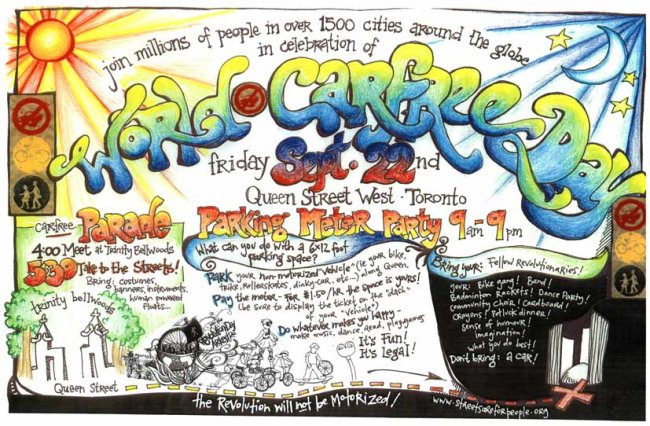 join millions of people in over 1500 cities around the globe
in celebration of
World Carfree Day
friday Sept. 22nd
Queen Street West · Toronto
Carfree Parade
4:00 Meet at Trinity Bellwoods
5:30 Take to the Streets!
Bring: costumes,
banners, instruments,
human powered
floats...
trinity bellwoods
Queen Street
Parking Meter Party 9am - 9pm
What can you do with a 6x12 foot
parking space?
Park your non-motorized vehicle (ie your bike,
trike, rollerskates, dinky-car, etc...) along Queen
Pay the meter - for $1.50/HR the space is yours!
(be sure to display the ticket on the "dash"
of your "vehicle")
Do whatever makes you happy -
make music, dance, read, play games
It's Fun!
It's Legal!
Bring your: Fellow Revolutionaries!
your: Bike gang! Band!
Badminton Rackets! Dance Party!
community choir! Cardboard!
Crayons! Potluck dinner!
Sense of humour!
imagination!
what you do best!
Don't bring: a car!
the Revolution will not be Motorized!
www.streetsareforpeople.org